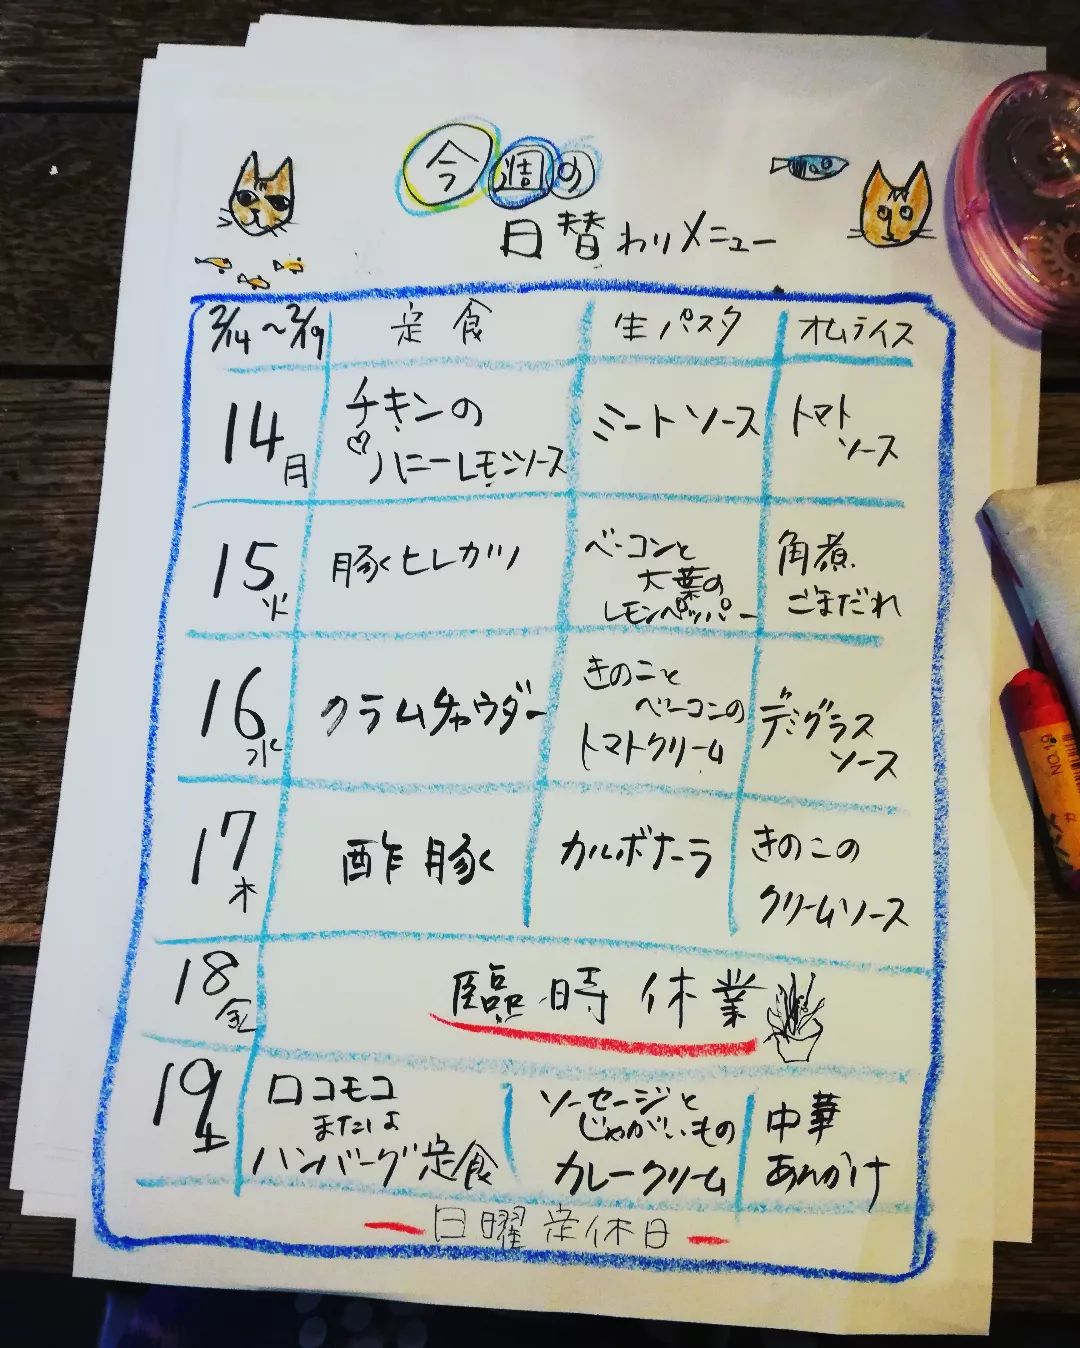 今週の
日替わりメニュー
2/14〜2/19 定食 生パスタ オムライス
14月
チキンの
♡ハニーレモンソース
ミートソース
トマト
ソース
15火
豚ヒレカツ
ベーコンと
大葉の
レモンペッパー
角煮
ごまだれ
16水
クラムチャウダー
きのこと
ベーコンの
トマトクリーム
デミグラス
ソース
17木
酢豚
カルボナーラ
きのこの
クリームソース
18金
臨時休業
19土
ロコモコ
または
ハンバーグ定食
ソーセージと
じゃがいもの
カレークリーム
中華
あんかけ
日曜定休日
NO.19